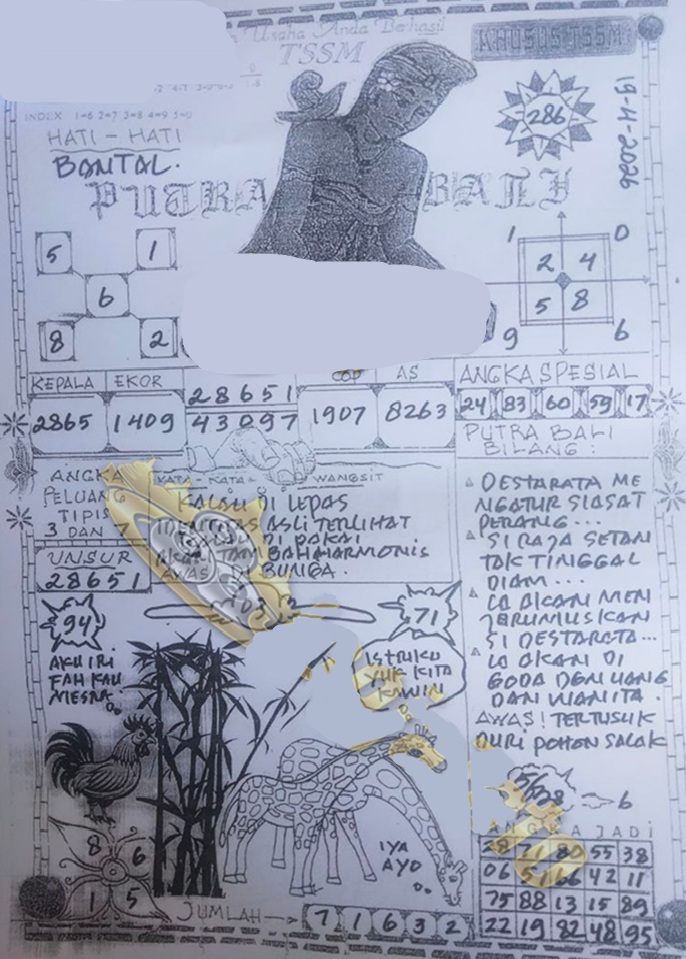 Usaha Anda Berhasil
TSSM
KHUSUS TSSM
INDEX 1=6 2=7 3=8 4=9 5=0
HATI - HATI
BANTAL.
PUTRA BALI
286
19-4-2026
5 1
6
8 2
1 0
2 4
5 8
9 6
KEPALA EKOR
2865 1409
28651
43097
COP AS
1907 8263
ANGKA SPESIAL
24 83 60 59 17
ANGKA
PELUANG
TIPIS
3 DAN 7
UNSUR
28651
KATA - KATA WANGSIT
KALAU DI LEPAS
IDENTITAS ASLI TERLIHAT
DI PAKAI
TAMBAH HARMONIS
AWAS BUNGA.
PUTRA BALI
BILANG:
DESTARATA ME
NGATUR SIASAT
PERANG...
SI RAJA SETAN
TAK TINGGAL
DIAM...
IA AKAN MEN
JERUMUSKAN
SI DESTARATA...
IA AKAN DI
GODA DENGAN UANG
DAN WANITA.
AWAS! TERTUSUK
DURI POHON SALAK
94
AKU IRI
MESRA
71
ISTRIKU
YUK KITA
KAWIN
IYA
AYO
8 6
1 5
JUMLAH 7 1 6 3 2
6
ANGKA JADI
55 38
06 42 11
75 88 13 15 89
22 19 82 48 95